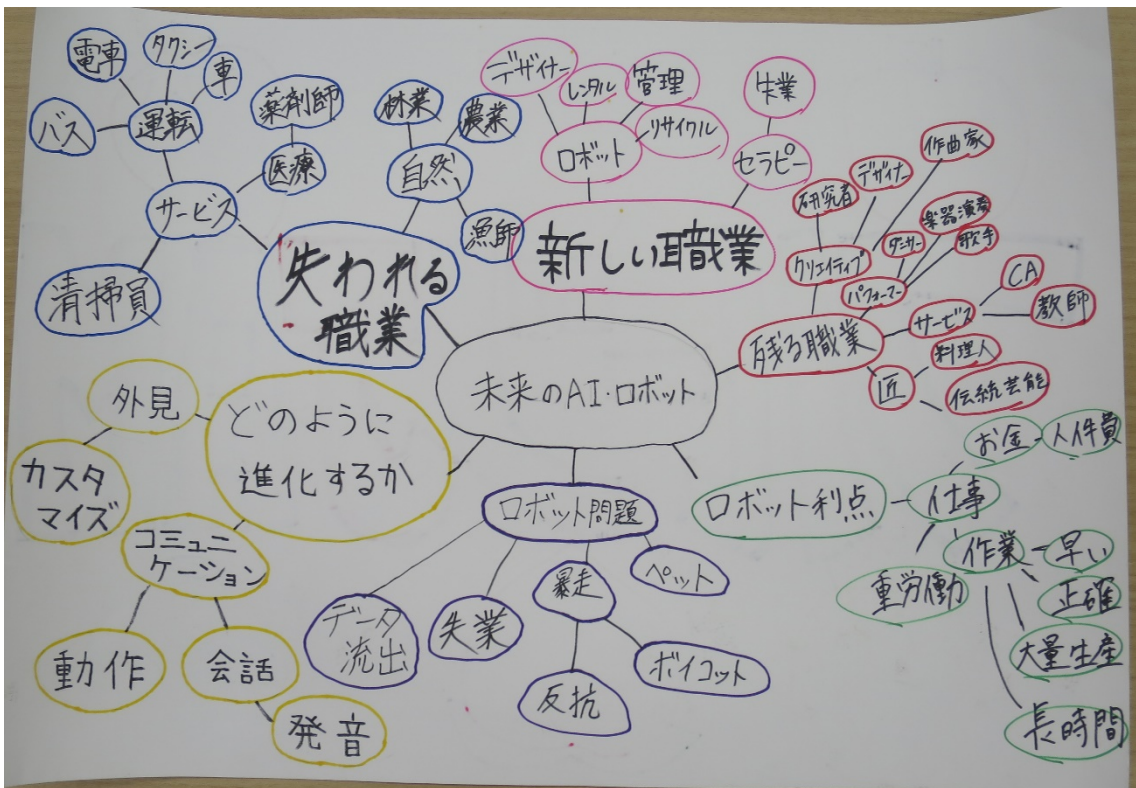 未来のAI・ロボット
失われる
職業
サービス
運転
バス
電車
タクシー
車
医療
薬剤師
清掃員
自然
林業
農業
漁師
新しい職業
ロボット
デザイナー
レンタル
管理
リサイクル
セラピー
失業
残る職業
クリエイティブ
研究者
デザイナー
作曲家
パフォーマー
ダンサー
楽器演奏
歌手
サービス
CA
教師
匠
料理人
伝統芸能
ロボット利点
仕事
お金
人件費
重労働
作業
早い
正確
大量生産
長時間
ロボット問題
データ
流出
失業
暴走
反抗
ボイコット
ペット
どのように
進化するか
外見
カスタ
マイズ
コミュニ
ケーション
動作
会話
発音